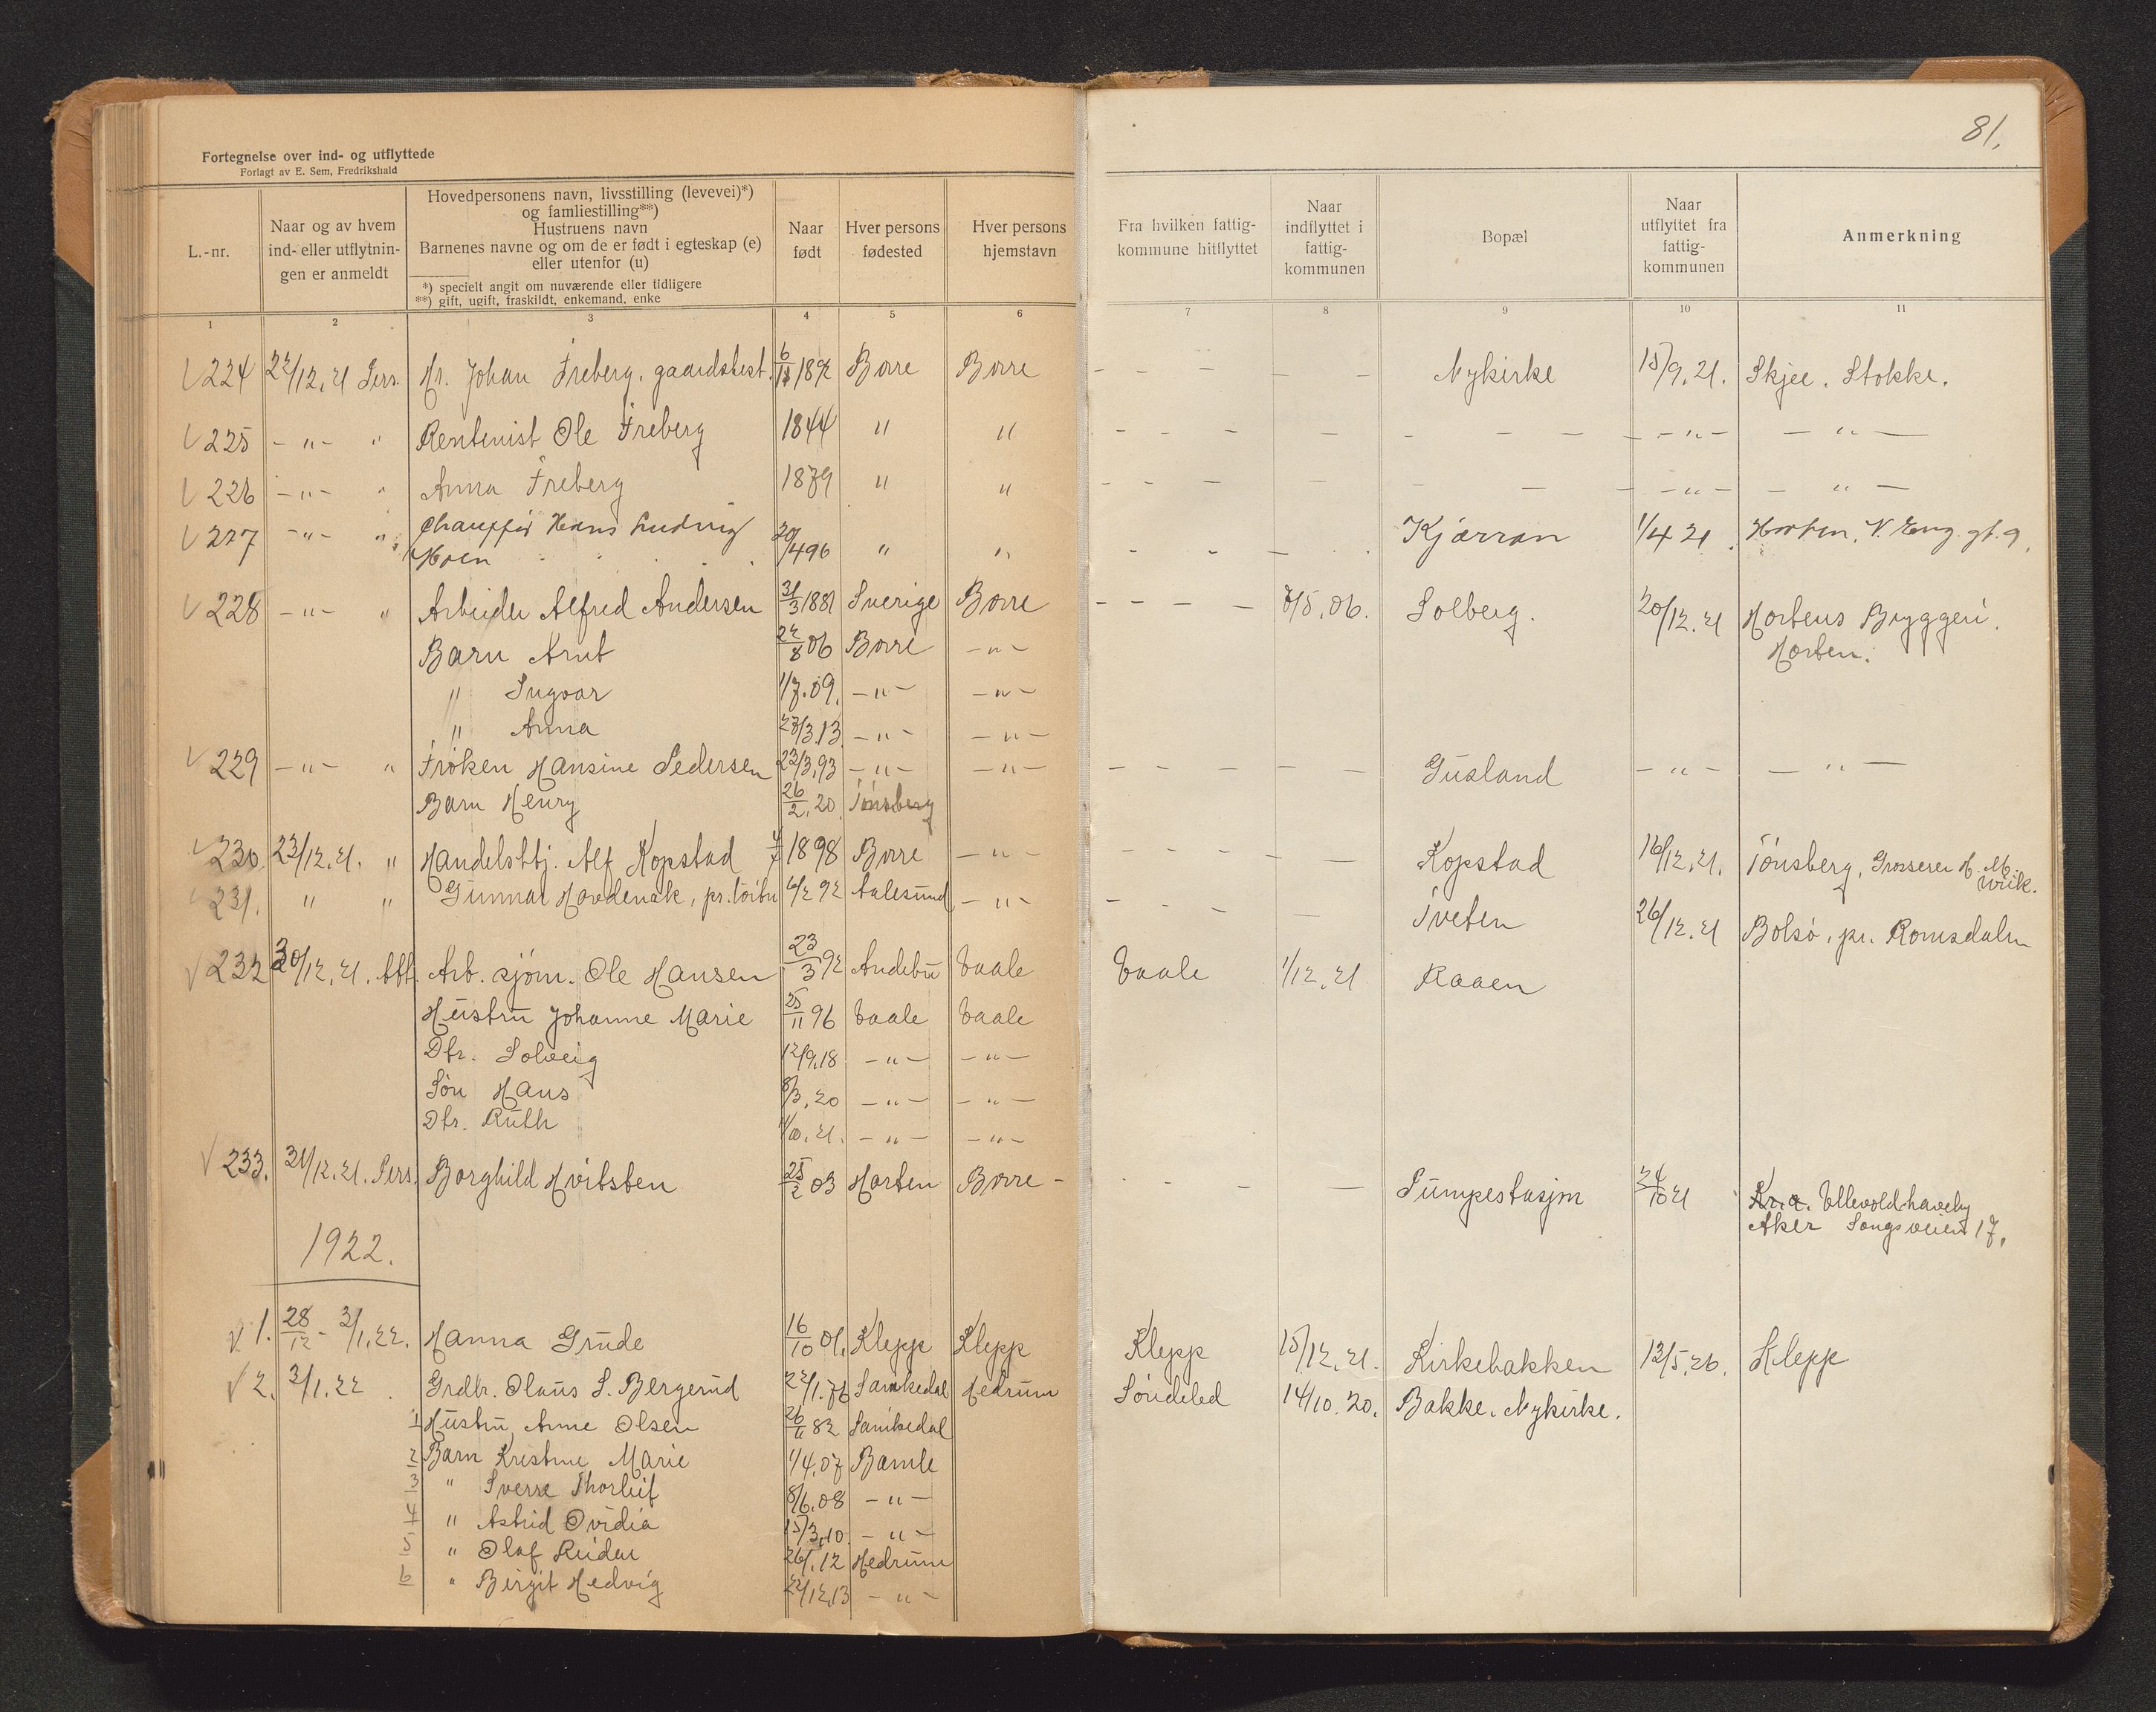 81.
Fortegnelse over ind- og utflyttede
Forlagt av E. Sem, Fredrikshald
L.-nr.
Naar og av hvem ind- eller utflytnin- gen er anmeldt
Hovedpersonens navn, livsstilling (levevei)*)
og famliestilling**)
Hustruens navn
Barnenes navne og om de er født i egteskap (e)
eller utenfor (u)
*) specielt angit om nuværende eller tidligere
**) gift, ugift, fraskildt, enkemand, enke
Naar født
Hver persons fødested
Hver persons hjemstavn
Fra hvilken fattig- kommune hitflyttet
Naar indflyttet i fattig- kommunen
Bopæl
Naar utflyttet fra fattig- kommunen
Anmerkning
1 2 3 4 5 6 7 8 9 10 11
224 22/12.21 Pers. Hr. Johan Freberg, gaardsbest. 1892 Borre Borre - - - - - Nykirke 15/9.21. Skjee. Stokke.
225 - " - " Rentenist Ole Freberg 1844 " " - - - - - - - - " - - " -
226 - " - " Anna Freberg 1879 " " - - - - - - - " - - " -
227 - " - " Chauffør Hans Ludvig 20/4 96 " " - - - Kjærran 1/4 21. Horten, V. Eng. gt. 9.
Hoen
228 - " - " Arbeider Alfred Andersen 31/3 1881 Sverige Borre - - - - /5.06. Solberg. 20/12.21 Hortens Bryggeri.
Barn Arnt 22/8 06 Borre - " - Horten.
" Ingvar 1/7.09. - " - - " -
" Anna 27/3.13 - " - - " -
229 - " - " Frøken Hansine Pedersen 23/3.93 - " - - " - - - - - - Gusland - " - - " -
Barn Henry 26/2.20 Tønsberg
230. 23/12.21. " Handelsbtj. Alf Kopstad 1898 Borre - " - - - - - - Kopstad 16/12.21. Tønsberg, Grosserer H. M. Wiik.
231. " " Gunnar Hovdenak, 92 Aalesund - " - - - - - Tveten 26/12.21 Bolsø, pr. Romsdalen
232 30/12.21. Att. Arb. sjøm. Ole Hansen 23/3 92 Andebu Vaale Vaale 1/12.21 Raaen
Hustru Johanne Marie 25/11 96 Vaale Vaale
Dtr. Solveig 12/9.18 - " - - " -
Søn Hans 8/3.20 - " - - " -
Dtr. Ruth /10.21. - " - - " -
233. 31/12.21. Pers. Borghild Hvitsten 25/2 03 Horten Borre - - - - - Pumpestasjon 24/10 21 Kr.a. Ullevold haveby
Aker Songsveien 17.
1922.
1. 28/12 - 3/1.22. Hanna Grude 16/10 01. Klepp Klepp Klepp 15/12.21. Kirkebakken 13/5.26. Klepp
2. 3/1.22. Grdbr. Olaus S. Bergerud 22/1.76 Sannikedal Hedrum Søndeled 14/10.20. Bakke. Nykirke.
1 Hustru Anne Olsen 26/11 82 Sannikedal
2 Barn Kristine Marie 1/4.07 Bamle
3 " Sverre Thorleif 8/6.08 - " -
4 " Astrid Ovidia 15/3.10. - " -
5 " Olaf Reidar 26/1.12 Hedrum
6 " Birgit Hedvig 22/12.13 - " -